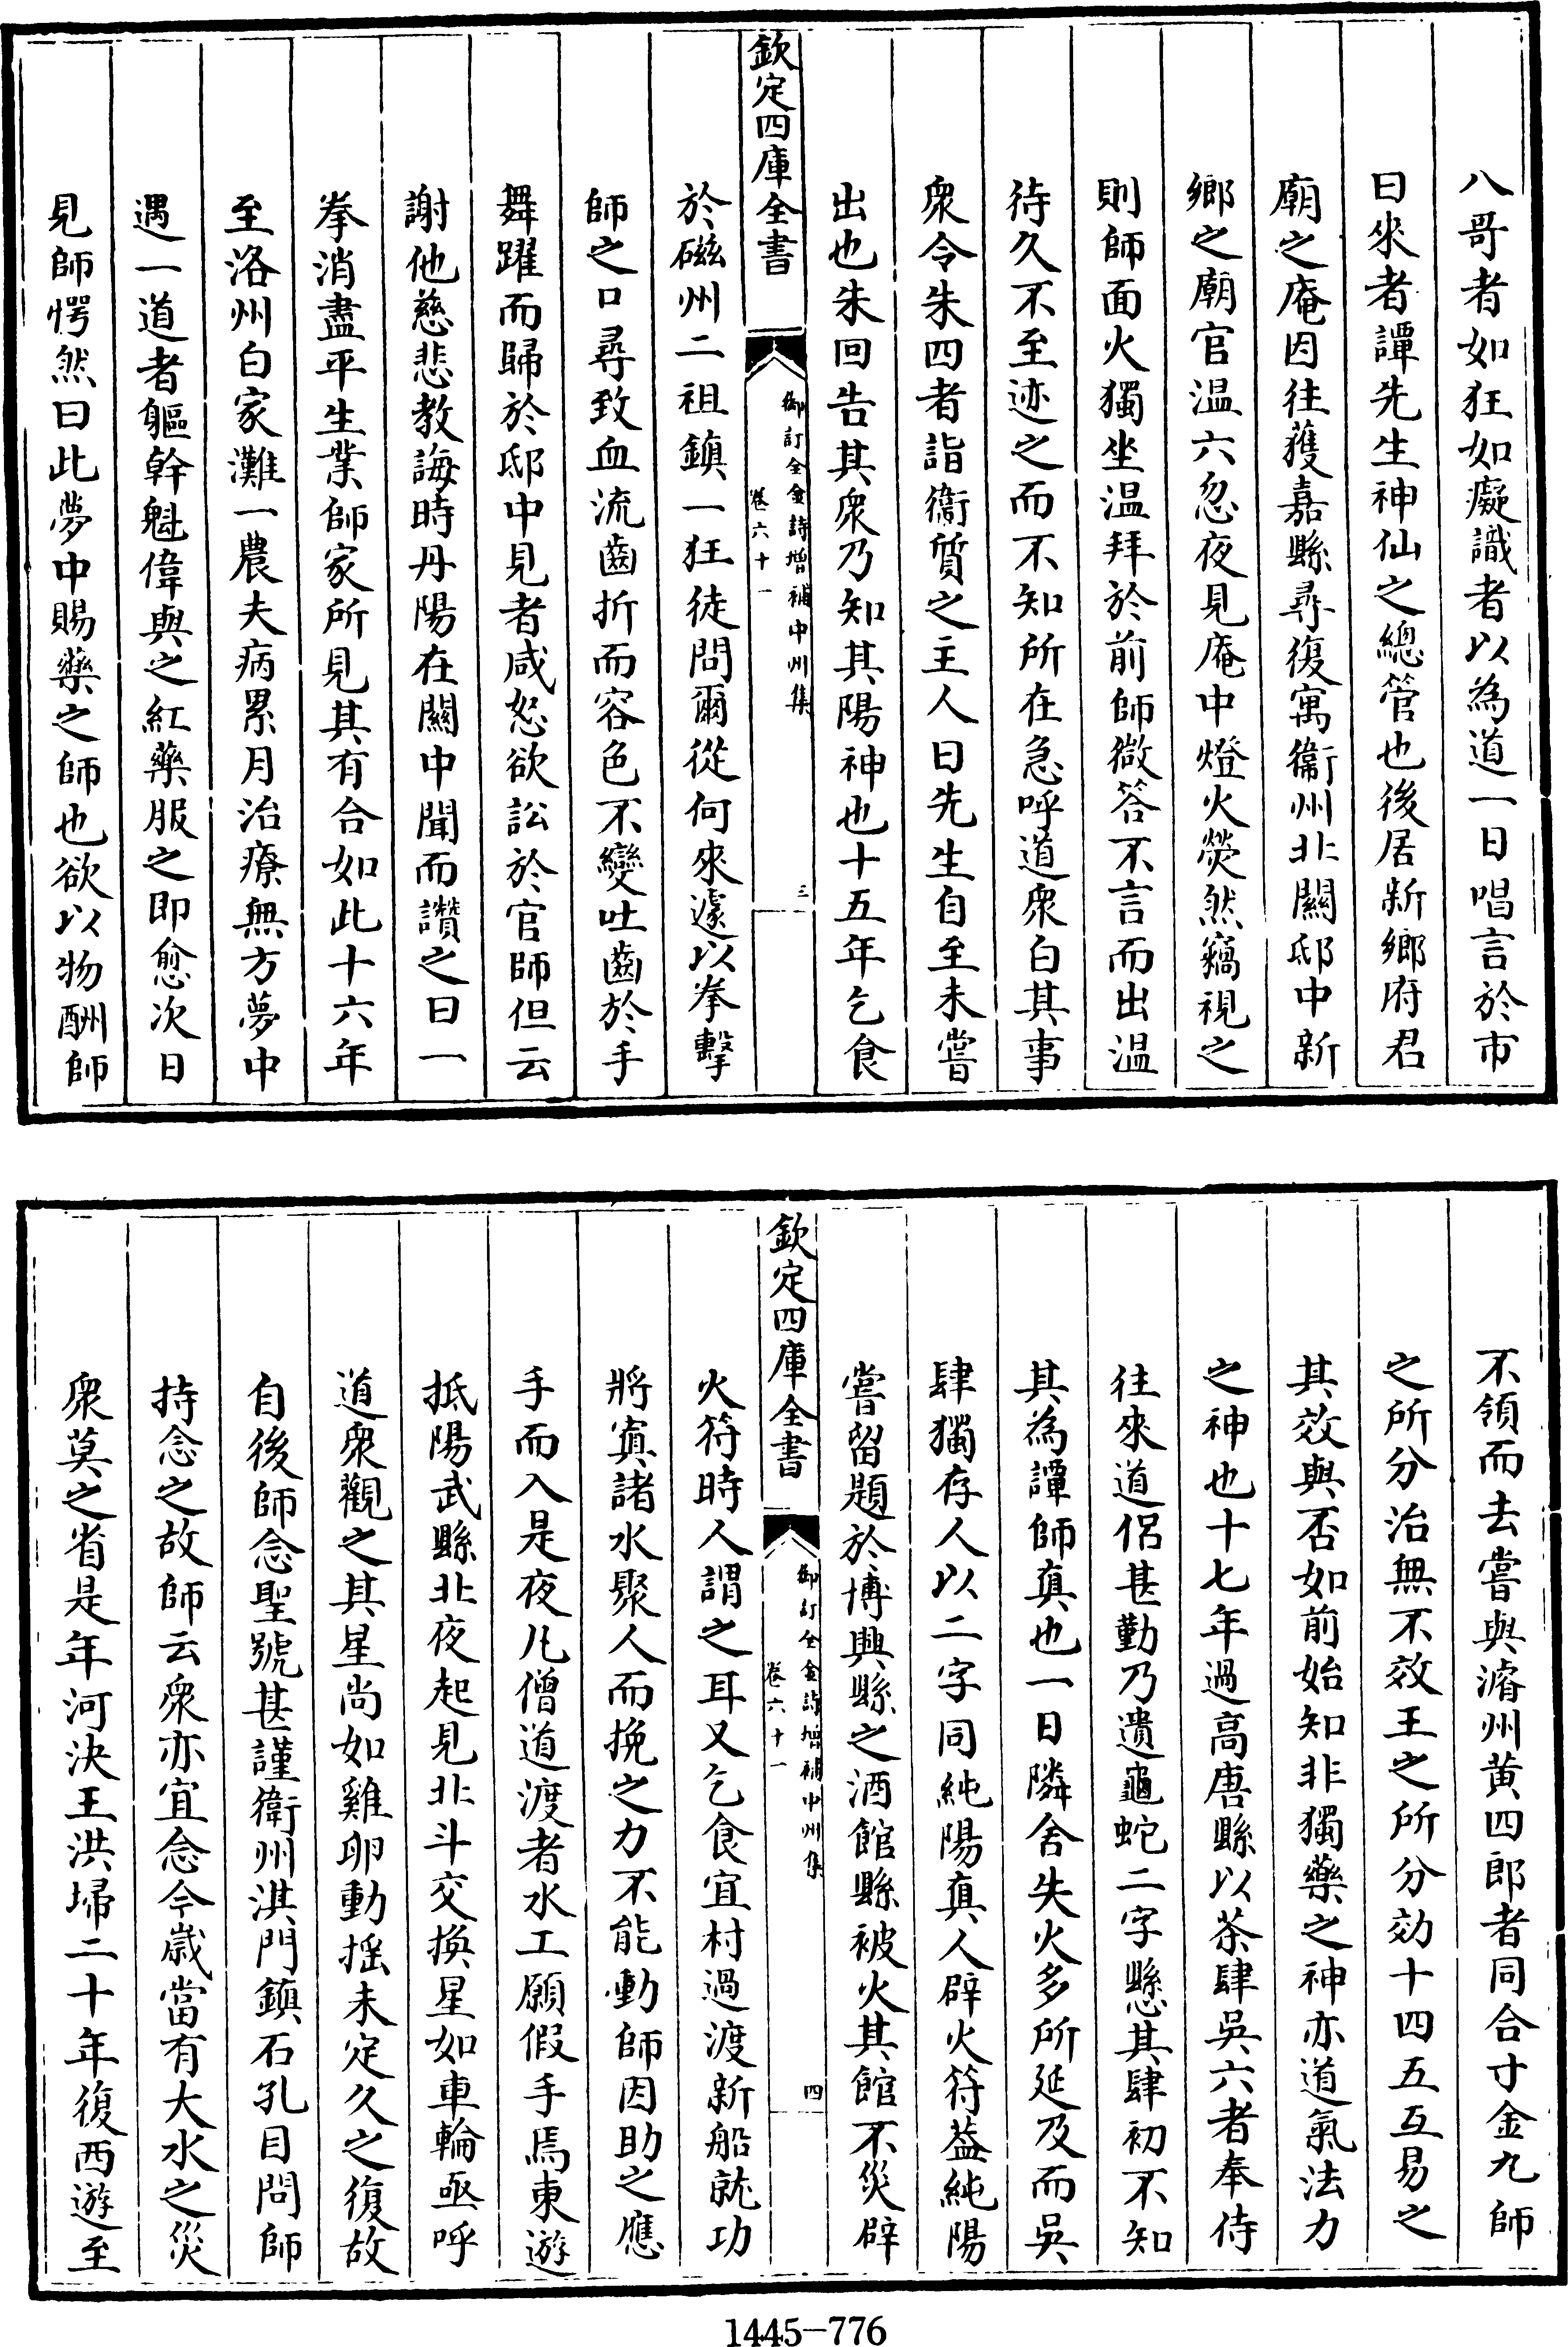 八哥者如狂如癡識者以為道一日唱言於市
曰來者譚先生神仙之總管也後居新鄉府君
廟之庵因往獲嘉縣尋復寓衞州北關邸中新
鄉之廟官温六忽夜見庵中燈火熒然竊視之
則師面火獨坐温拜於前師微答不言而出温
待久不至迹之而不知所在急呼道衆白其事
衆令朱四者詣衞質之主人曰先生自至未嘗
出也朱回告其衆乃知其陽神也十五年乞食
欽定四庫全書
御訂全金詩增補中州集
卷六十一
三
於磁州二祖鎮一狂徒問爾從何來遽以拳擊
師之口尋致血流齒折而容色不變吐齒於手
舞躍而歸於邸中見者咸怒欲訟於官師但云
謝他慈悲教誨時丹陽在關中聞而讚之曰一
拳消盡平生業師家所見其有合如此十六年
至洛州白家灘一農夫病累月治療無方夢中
遇一道者軀幹魁偉與之紅藥服之即愈次日
見師愕然曰此夢中賜藥之師也欲以物酬師
不領而去嘗與濬州黄四郎者同合寸金九師
之所分治無不效王之所分効十四五互易之
其效與否如前始知非獨藥之神亦道氣法力
之神也十七年過高唐縣以茶肆吳六者奉侍
往來道侣甚勤乃遺龜蛇二字懸其肆初不知
其為譚師真也一日隣舍失火多所延及而吳
肆獨存人以二字同純陽真人辟火符葢純陽
嘗留題於博興縣之酒館縣被火其館不災辟
欽定四庫全書
御訂全金詩增補中州集
卷六十一
四
火符時人謂之耳又乞食宜村過渡新船就功
將寘諸水聚人而挽之力不能動師因助之應
手而入是夜凡僧道渡者水工願假手焉東遊
抵陽武縣北夜起見北斗交換星如車輪亟呼
道衆觀之其星尚如雞卵動揺未定久之復故
自後師念聖號甚謹衞州淇門鎮石孔目問師
持念之故師云衆亦宜念今歲當有大水之災
衆莫之省是年河決王洪埽二十年復西遊至
1445-776